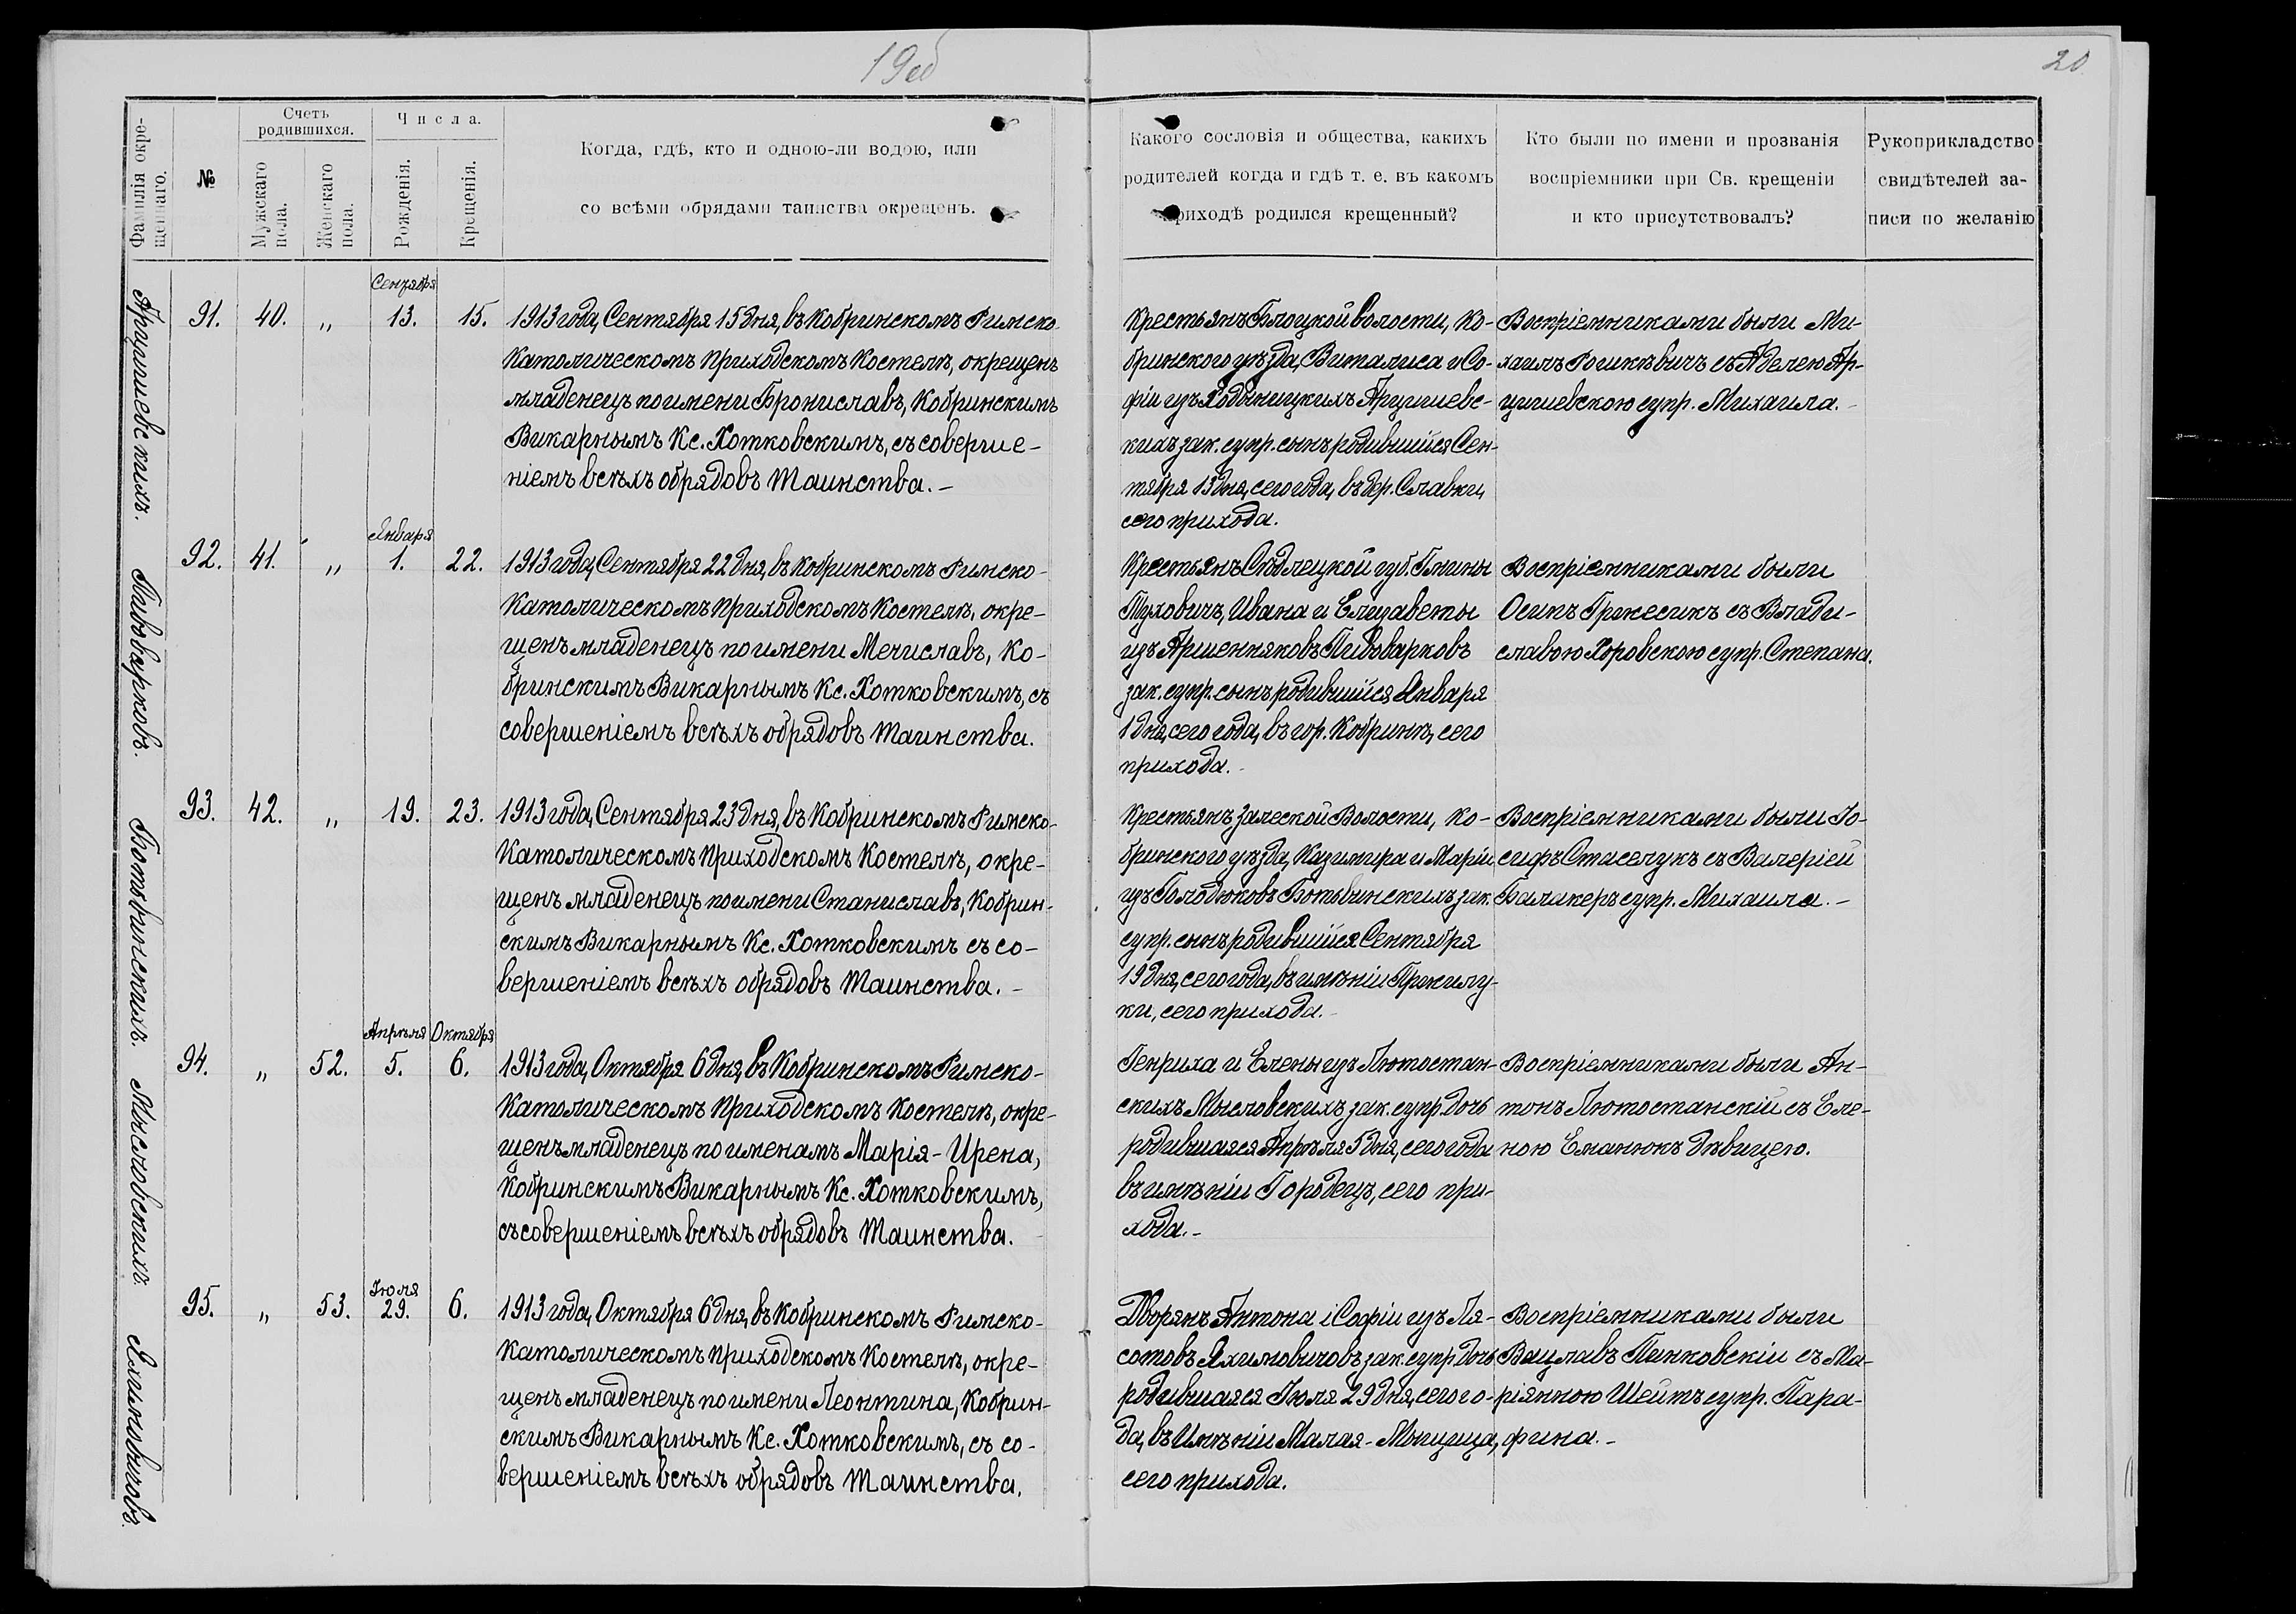 19об
20
Фамилія окре-
щеннаго.
№
Счетъ
родившихся.
Мужскаго
пола.
Женскаго
пола.
Числа.
Рожденія.
Крещенія.
Когда, гдѣ, кто и одною-ли водою, или
со всѣми обрядами таинства окрещенъ.
Какого сословія и общества, какихъ
родителей когда и гдѣ т. е. въ какомъ
приходѣ родился крещенный?
Кто были по имени и прозванія
воспріемники при Св. крещеніи
и кто присутствовалъ?
Рукоприкладство
свидѣтелей за-
писи по желанію
Арцишевскихъ.
Сентября
91. 40. „ 13. 15.
1913 года, Сентября 15 дня, въ Кобринскомъ Римско-
Католическомъ Приходскомъ Костелѣ, окрещенъ
младенецъ по имени Брониславъ, Кобринскимъ
Викарнымъ Кс. Хотковскимъ, съ соверше-
ніемъ всѣхъ обрядовъ Таинства.-
Крестьянъ Блоцкой волости, Ко-
бринского уѣзда, Виталиса и Со-
фіи изъ Ходыницкихъ Арцишевс-
кихъ зак. супр. сынъ родившійся Сен-
тября 13 дня, сего года, въ дер. Славки,
сего прихода.
Воспріемниками были Ми-
хаилъ Рошкѣвичъ съ Аделею Ар-
цишевскою супр. Михаила.-
Пивоварковъ.
Января
92. 41. „ 1. 22.
1913 года, Сентября 22 дня, въ Кобринскомъ Римско-
Католическомъ Приходскомъ Костелѣ, окре-
щенъ младенецъ по имени Мечиславъ, Ко-
бринскимъ Викарнымъ Кс. Хотковскимъ, съ
совершеніемъ всѣхъ обрядовъ Таинства.
Крестьянъ Сѣдлецкой губ. Гмины
Тухович, Ивана и Елизаветы
изъ Аршенняковъ Пивоварковъ
зак. супр. сынъ родившійся Января
1 дня, сего года, въ гор. Кобринѣ, сего
прихода.-
Воспріемниками были
Осипъ Гржесикъ съ Влади-
славою Хоровскою супр. Степана.
Ботвинскихъ.
93. 42. „ 19. 23.
1913 года, Сентября 23 дня, въ Кобринскомъ Римско-
Католическомъ Приходскомъ Костелѣ, окре-
щенъ младенецъ по имени Станиславъ, Кобрин-
скимъ Викарнымъ Кс. Хотковскимъ съ со-
вершеніемъ всѣхъ обрядовъ Таинства.-
Крестьянъ Залеской Волости, Ко-
бринского уѣзда, Казимира и Маріи
изъ Голодюковъ Ботвинскихъ зак.
супр. сынъ родившійся Сентября
19 дня, сего года, въ имѣніи Прилу-
ки, сего прихода.-
Воспріемниками были Іо-
сифъ Стаселукъ съ Валеріей
Балакеръ супр. Михаила.-
Мысловскихъ.
Апрѣля Октября
94. „ 52. 5. 6.
1913 года, Октября 6 дня, въ Кобринскомъ Римско-
Католическомъ Приходскомъ Костелѣ, окре-
щенъ младенецъ по именамъ Марія-Ирена,
Кобринскимъ Викарнымъ Кс. Хотковскимъ,
съ совершеніемъ всѣхъ обрядовъ Таинства.
Генриха и Елены изъ Лютостан-
скихъ Мысловскихъ зак. супр. дочь
родившаяся Апрѣля 5 дня, сего года
въ имѣніи Городецъ, сего при-
хода.-
Воспріемниками были Ан-
тонъ Лютостанскій съ Еле-
ною Еманюкъ дѣвицею.
Яхимовичовъ.
Іюля
95. „ 53. 29. 6.
1913 года, Октября 6 дня, въ Кобринскомъ Римско-
Католическомъ Приходскомъ Костелѣ, окре-
щенъ младенецъ по имени Леонтина, Кобрин-
скимъ Викарнымъ Кс. Хотковскимъ, съ со-
вершеніемъ всѣхъ обрядовъ Таинства.
Дворянъ Антона і Софіи изъ Ля-
сотовъ Яхимовичовъ зак. супр. дочь
родившаяся Іюля 29 дня, сего го-
да, въ Имѣніи Малая-Мыщица,
сего прихода.
Воспріемниками были
Вацлавъ Пенковскій съ Ма-
ріянною Шейтъ супр. Пара-
фина.-